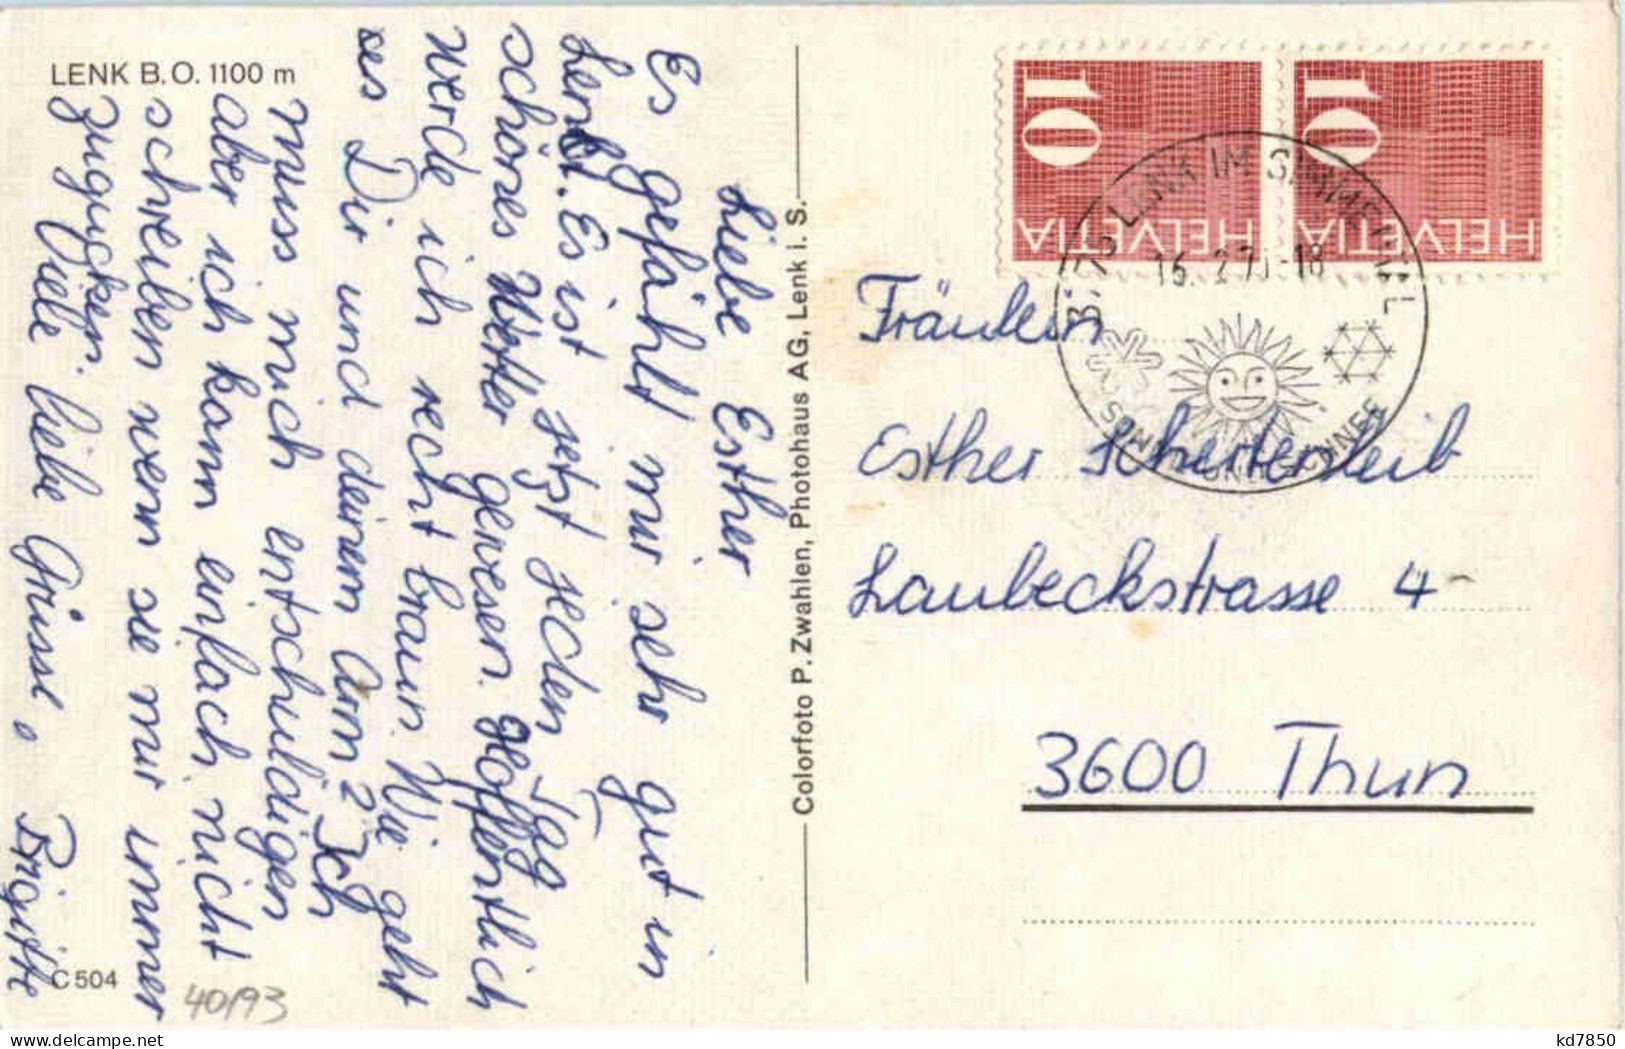 LENK B.O. 1100 m
Liebe Esther
Es gefählt mir sehr gut in
Lenk. Es ist jetzt jeden Tag
schönes Wetter gewesen. Hoffentlich
werde ich recht braun. Wie geht
es Dir und deinem Arm? Ich
muss mich entschuldigen
aber ich kann einfach nicht
schreiben wenn sie mir immer
zugucken.
Viele liebe Grüsse,
Brigitte
C 504
40/93
Colorfoto P. Zwahlen, Photohaus AG, Lenk i. S.
10 HELVETIA
10 HELVETIA
LENK IM SIMMENTAL
SONNE UND SCHNEE
Fräulein
Esther Schertenleib
Laubeckstrasse 4
3600 Thun
kd7850